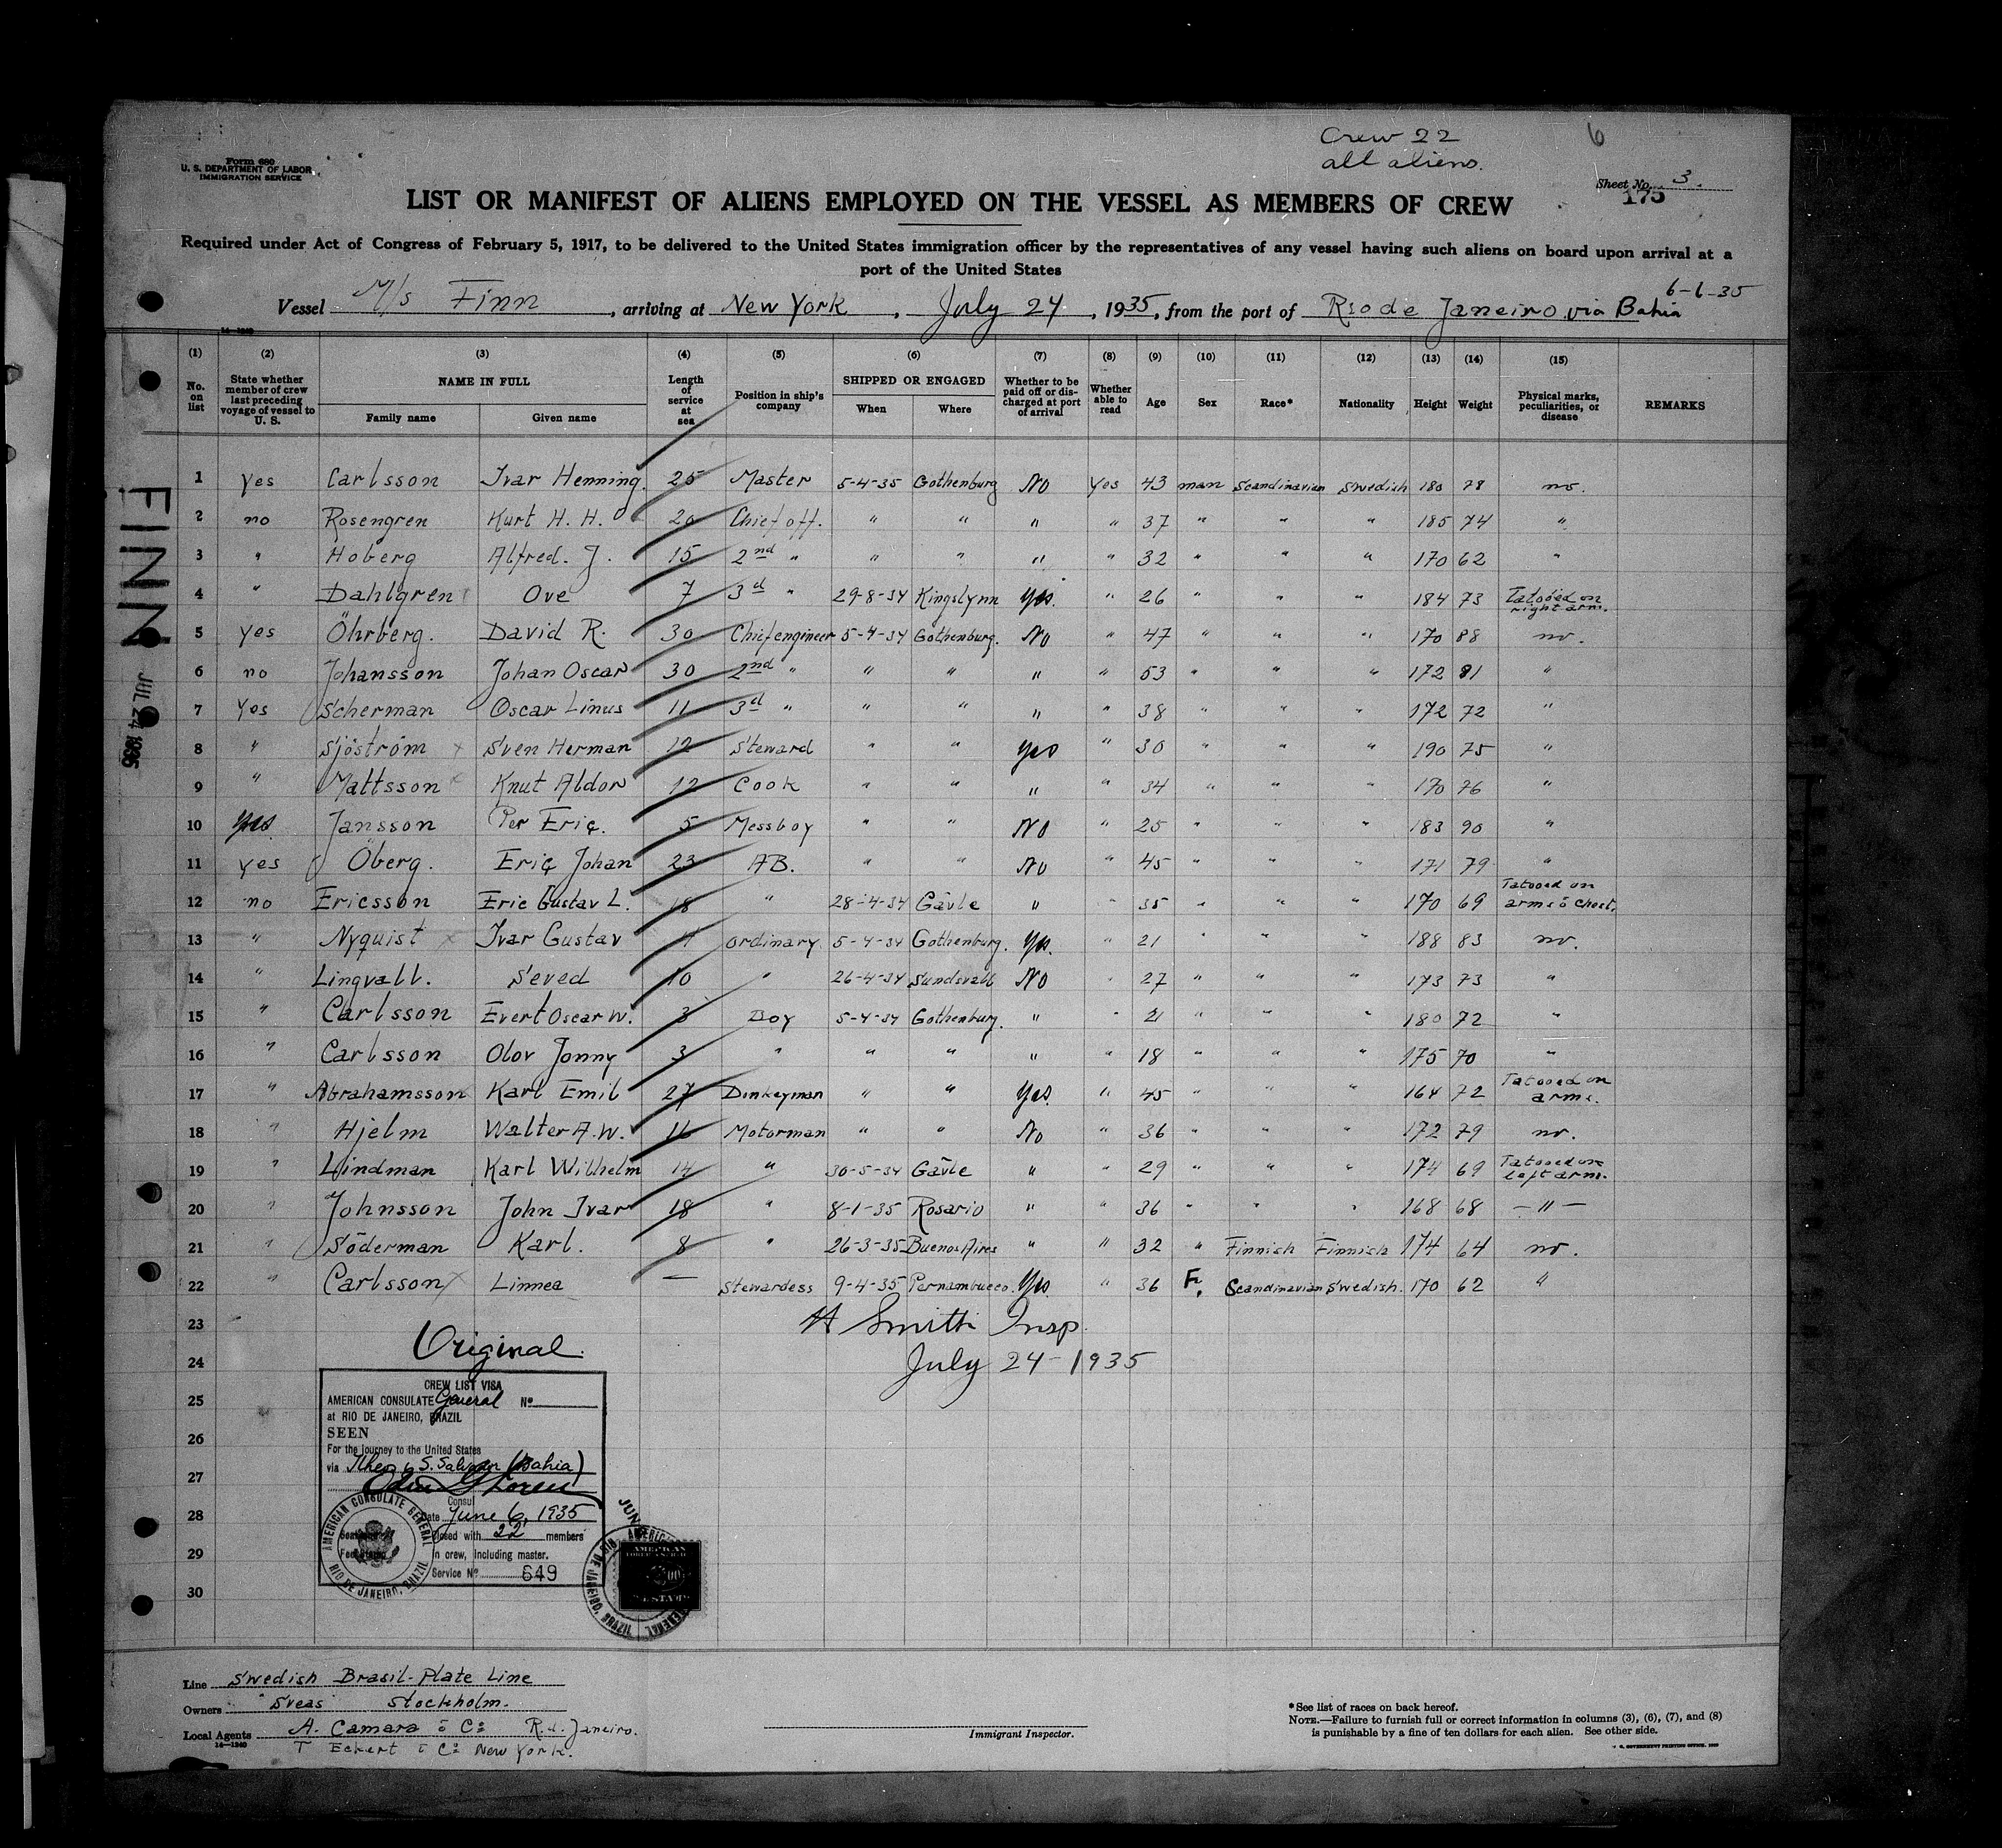 Crew 22
all aliens.
6
Form 680
U. S. DEPARTMENT OF LABOR
IMMIGRATION SERVICE
Sheet No. 3.
175
LIST OR MANIFEST OF ALIENS EMPLOYED ON THE VESSEL AS MEMBERS OF CREW
Required under Act of Congress of February 5, 1917, to be delivered to the United States immigration officer by the representatives of any vessel having such aliens on board upon arrival at a
port of the United States
6-6-35
Vessel M/s Finn, arriving at New York, July 24, 1935, from the port of Rio de Janeiro via Bahia
14—1940
(1) (2) (3) (4) (5) (6) (7) (8) (9) (10) (11) (12) (13) (14) (15)
No. on list State whether member of crew last preceding voyage of vessel to U. S. NAME IN FULL Family name Given name Length of service at sea Position in ship's company SHIPPED OR ENGAGED When Where Whether to be paid off or discharged at port of arrival Whether able to read Age Sex Race* Nationality Height Weight Physical marks, peculiarities, or disease REMARKS
1 Yes Carlsson Ivar Henning 25 Master 5-4-35 Gothenburg No Yes 43 man Scandinavian Swedish 180 78 no.
2 no Rosengren Kurt H. H. 20 Chief off. " " " " 37 " " " 185 74 "
3 " Hoberg Alfred. J. 15 2nd " " " " " 32 " " " 170 62 "
4 " Dahlgren Ove 7 3d " 29-8-34 Kingslynn Yes. " 26 " " " 184 73 Tatooed on right arm.
5 Yes Öhrberg. David R. 30 Chief engineer 5-4-34 Gothenburg. No " 47 " " " 170 88 no.
6 no Johansson Johan Oscar 30 2nd " " " " " 53 " " " 172 81 "
7 Yes Scherman Oscar Linus 11 3d " " " " " 38 " " " 172 72 "
8 " Sjöström Sven Herman 12 Steward " " Yes " 30 " " " 190 75 "
9 " Mattsson Knut Aldor 12 Cook " " " " 34 " " " 170 76 "
10 Yes Jansson Per Eric. 5 Messboy " " No " 25 " " " 183 90 "
11 Yes Öberg. Eric Johan 23 AB. " " No " 45 " " " 171 79 "
12 no Ericsson Eric Gustav L. 18 " 28-4-34 Gävle " " 35 " " " 170 69 Tatooed on arms ö Chest.
13 " Nyquist Ivar Gustav 4 ordinary 5-4-34 Gothenburg. Yes. " 21 " " " 188 83 no.
14 " Lingvall. Seved 10 " 26-4-34 Sundsvall No " 27 " " " 173 73 "
15 " Carlsson Evert Oscar W. 3 Boy 5-4-34 Gothenburg. " " 21 " " " 180 72 "
16 " Carlsson Olov Jonny 3 " " " " " 18 " " " 175 70 "
17 " Abrahamsson Karl Emil 27 Donkeyman " " Yes " 45 " " " 164 72 Tatooed on arms.
18 " Hjelm Walter A.W. 16 Motorman " " No " 36 " " " 172 79 no.
19 " Lindman Karl Wilhelm 14 " 30-5-34 Gävle " " 29 " " " 174 69 Tatooed on left arm.
20 " Johnsson John Ivar 18 " 8-1-35 Rosario " " 36 " " " 168 68 — " —
21 " Söderman Karl. 8 " 26-3-35 Buenos Aires " " 32 " Finnish Finnish 174 64 no.
22 " Carlsson Linnea — Stewardess 9-4-35 Pernambuco. Yes " 36 F. Scandinavian Swedish. 170 62 "
23
24
25
26
27
28
29
30
H Smith Insp.
July 24-1935
Original
CREW LIST VISA
AMERICAN CONSULATE General No
at RIO DE JANEIRO, BRAZIL
SEEN
For the journey to the United States
via S. Salvador (Bahia)
Consul
Date June 6, 1935
Closed with 22 members
in crew, including master.
Service No 649
AMERICAN CONSULATE GENERAL
RIO DE JANEIRO, BRAZIL
JUN
FINN
JUL 24 1935
Line Swedish Brasil-Plate Line
Owners "Sveas" Stockholm.
Local Agents A. Camara ö Co R.d. Janeiro.
14—1940
T Eckert ö Co New York.
Immigrant Inspector.
*See list of races on back hereof.
NOTE.—Failure to furnish full or correct information in columns (3), (6), (7), and (8)
is punishable by a fine of ten dollars for each alien. See other side.
U. S. GOVERNMENT PRINTING OFFICE